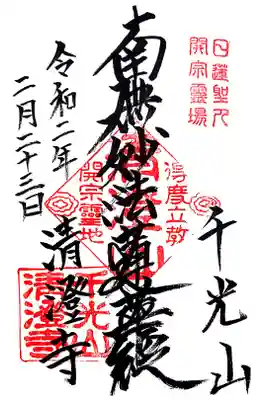 日蓮聖人
開宗靈場
千光山
南無妙法蓮華経
清澄寺
令和二年
二月二十三日
得度立教
開宗靈地
千光山
清澄寺